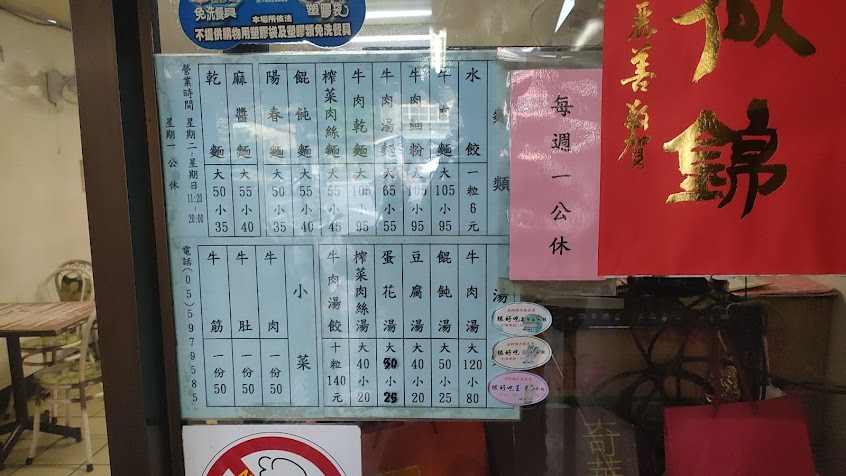 免洗餐具
塑膠袋
本場所依法
不提供購物用塑膠袋及塑膠類免洗餐具
麵類
水餃 一粒6元
牛肉麵 大105 小95
牛肉細粉 大105 小95
牛肉湯麵 大65 小55
牛肉乾麵 大105 小95
榨菜肉絲麵 大55 小45
餛飩麵 大55 小40
陽春麵 大50 小35
麻醬麵 大55 小40
乾麵 大50 小35
營業時間 星期二~星期日 11:20~20:00
星期一 公休
湯
牛肉湯 大120 小80
餛飩湯 大50 小25
豆腐湯 大40 小20
蛋花湯 大 小
榨菜肉絲湯 大40 小20
牛肉湯餃 十粒140元
小菜
牛肉 一份50
牛肚 一份50
牛筋 一份50
電話(05)5979585
每週一公休
錦
善
賀
很好吃
很好吃
很好吃